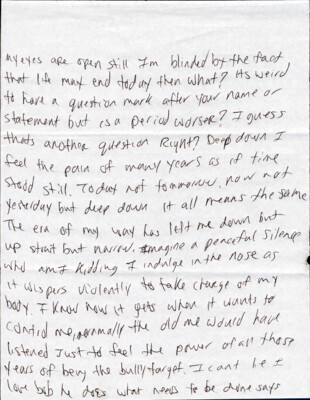 my eyes are open still I'm blinded by the fact
that life may end today then what? Its weird
to have a question mark after your name or
statement but is a period worser? I guess
thats another question Right? Deep down I
feel the pain of many years as if time
stood still. Today not tommorow, now not
yesterday but deep down it all means the same
The era of my way has left me down but
up strait but narrow. Imagine a peaceful silence
who am I kidding I indulge in the nose as
it wispers violently to take charge of my
body. I know how it gets when it wants to
control me, normally the old me would have
listened Just to feel the power of all those
years of being the bully target. I cant lie I
love bob he does what needs to be done says